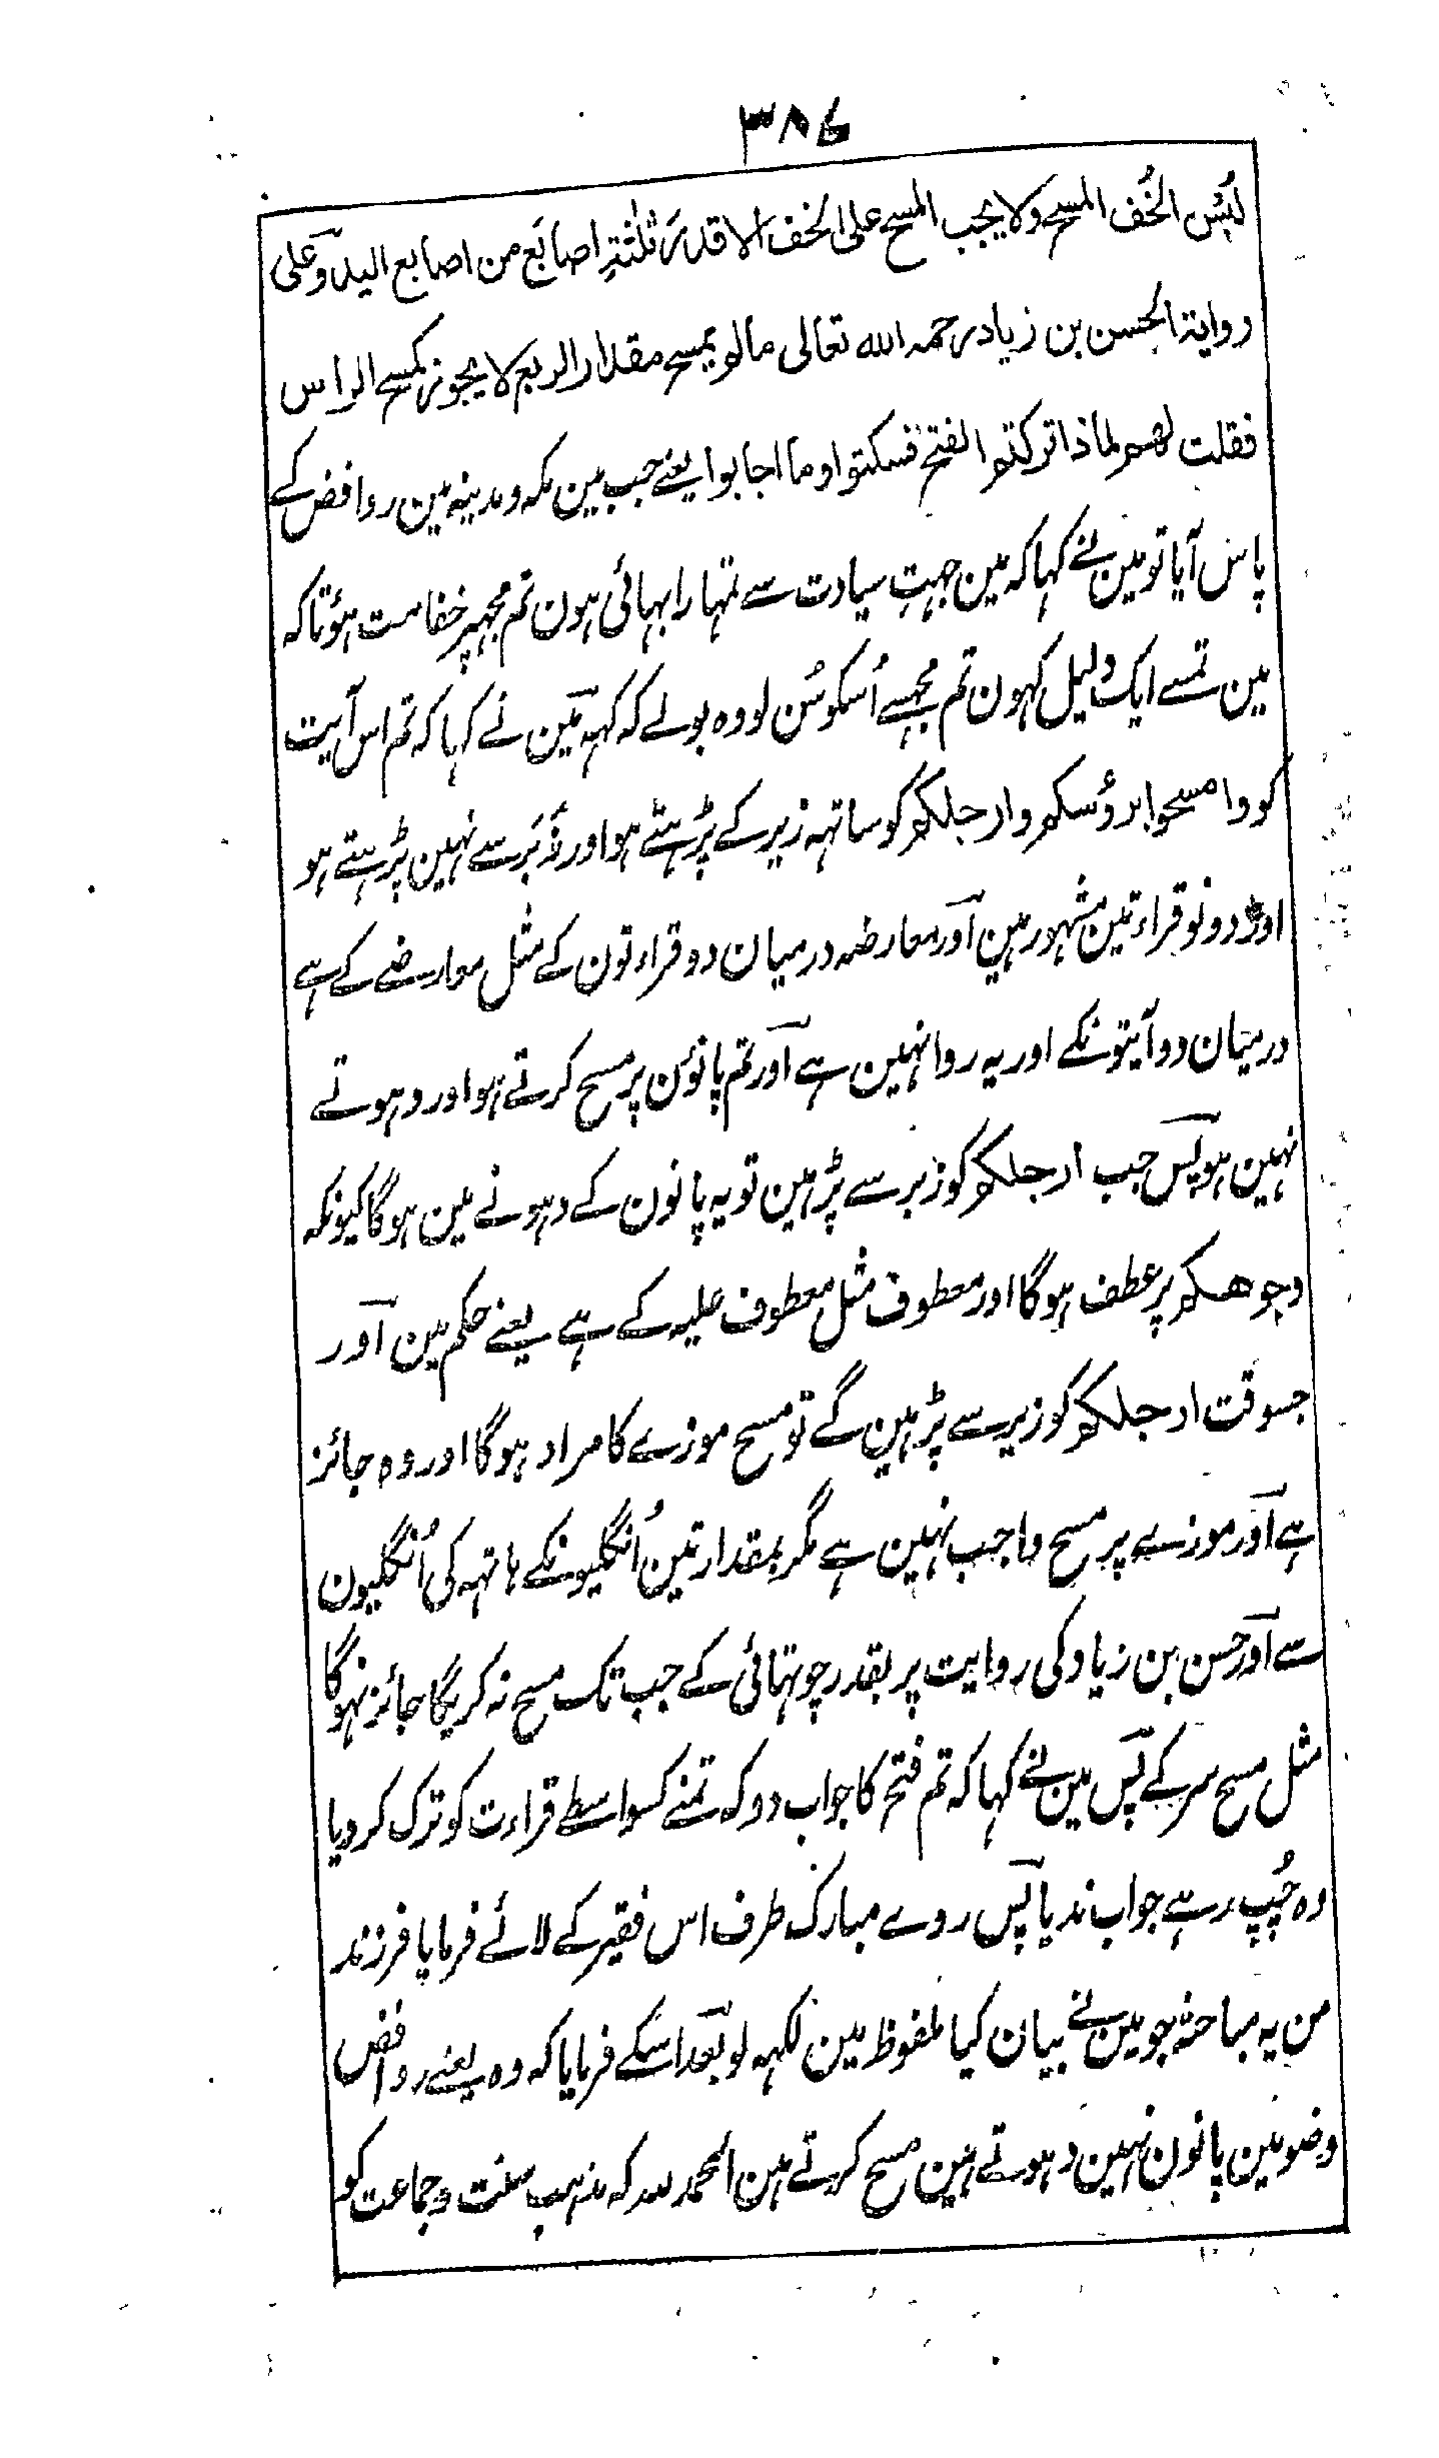 ۳۸۶
لُبْسِ الخُف المسح ولا یجب المسح علی الخف الا قدرَ ثلٰثةِ اصابَع من اصابع الید وَعلی
روایة الحسن بن زیاد رحمه الله تعالی مالو یمسح مقدار الربع لا یجوز کمسح الراس
فقلت لهم لماذا ترکتم الفتح فسکتوا وما اجابوا یعنے جب مین مکہ ومدینہ مین روافض کے
پاس آیا تو مین نے کہا کہ مین جہتِ سیادت سے تمہارا بہائی ہون تم مجہپر خفامت ہوٴ تاکہ
مین تمسے ایک دلیل کہون تم مجہسے اُسکو سُن لو وہ بولے کہ کہہ مَین نے کہا کہ تم اس آیت
کو وامسحوا برؤسکم وارجلکم کو ساتہہ زیر کے پڑہتے ہو اور زَبَر سے نہین پڑہتے ہو
اور دونو قراءتین مشہور ہین آور معارضہ درمیان دو قراءتون کے مثل معارضے کے ہے
درمیان دو آیتونکے اور یہ روا نہین ہے آور تم پانوٴن پر مسح کرتے ہو اور دہوتے
نہین ہو پَس جب ارجلکم کو زبر سے پڑہین تو یہ پانون کے دہونے مین ہوگا کیونکہ
وجوهکم پر عطف ہوگا اور معطوف مثل معطوف علیہ کے ہے یعنے حکم مین آور
جسوقت ارجلکم کو زیر سے پڑہین گے تو مسح موزے کا مراد ہوگا اور وہ جائز
ہے آور موزے پر مسح واجب نہین ہے مگر بمقدار تین اُنگلیونکے ہاتہہ کی اُنگلیون
سے آور حسن بن زیاد کی روایت پر بقدر چوتہائی کے جب تک مسح نہ کریگا جائز نہوگا
مثل مسح سر کے پَس مین نے کہا کہ تم فتح کا جواب دو کہ تمنے کسواسطے قراءت کو ترک کر دیا
وہ چُپ رہے جواب ندیا پَس روے مبارک طرف اس فقیر کے لائے فرمایا فرزند
من یہ مباحثہ جو مین نے بیان کیا ملفوظ مین لکہہ لو بَعد اسکے فرمایا کہ وہ یعنے روافض
وضو مین پانون نہین دہوتے ہین مسح کرتے ہین اَلحمد للہ کہ مذہب سنت وجماعت کو